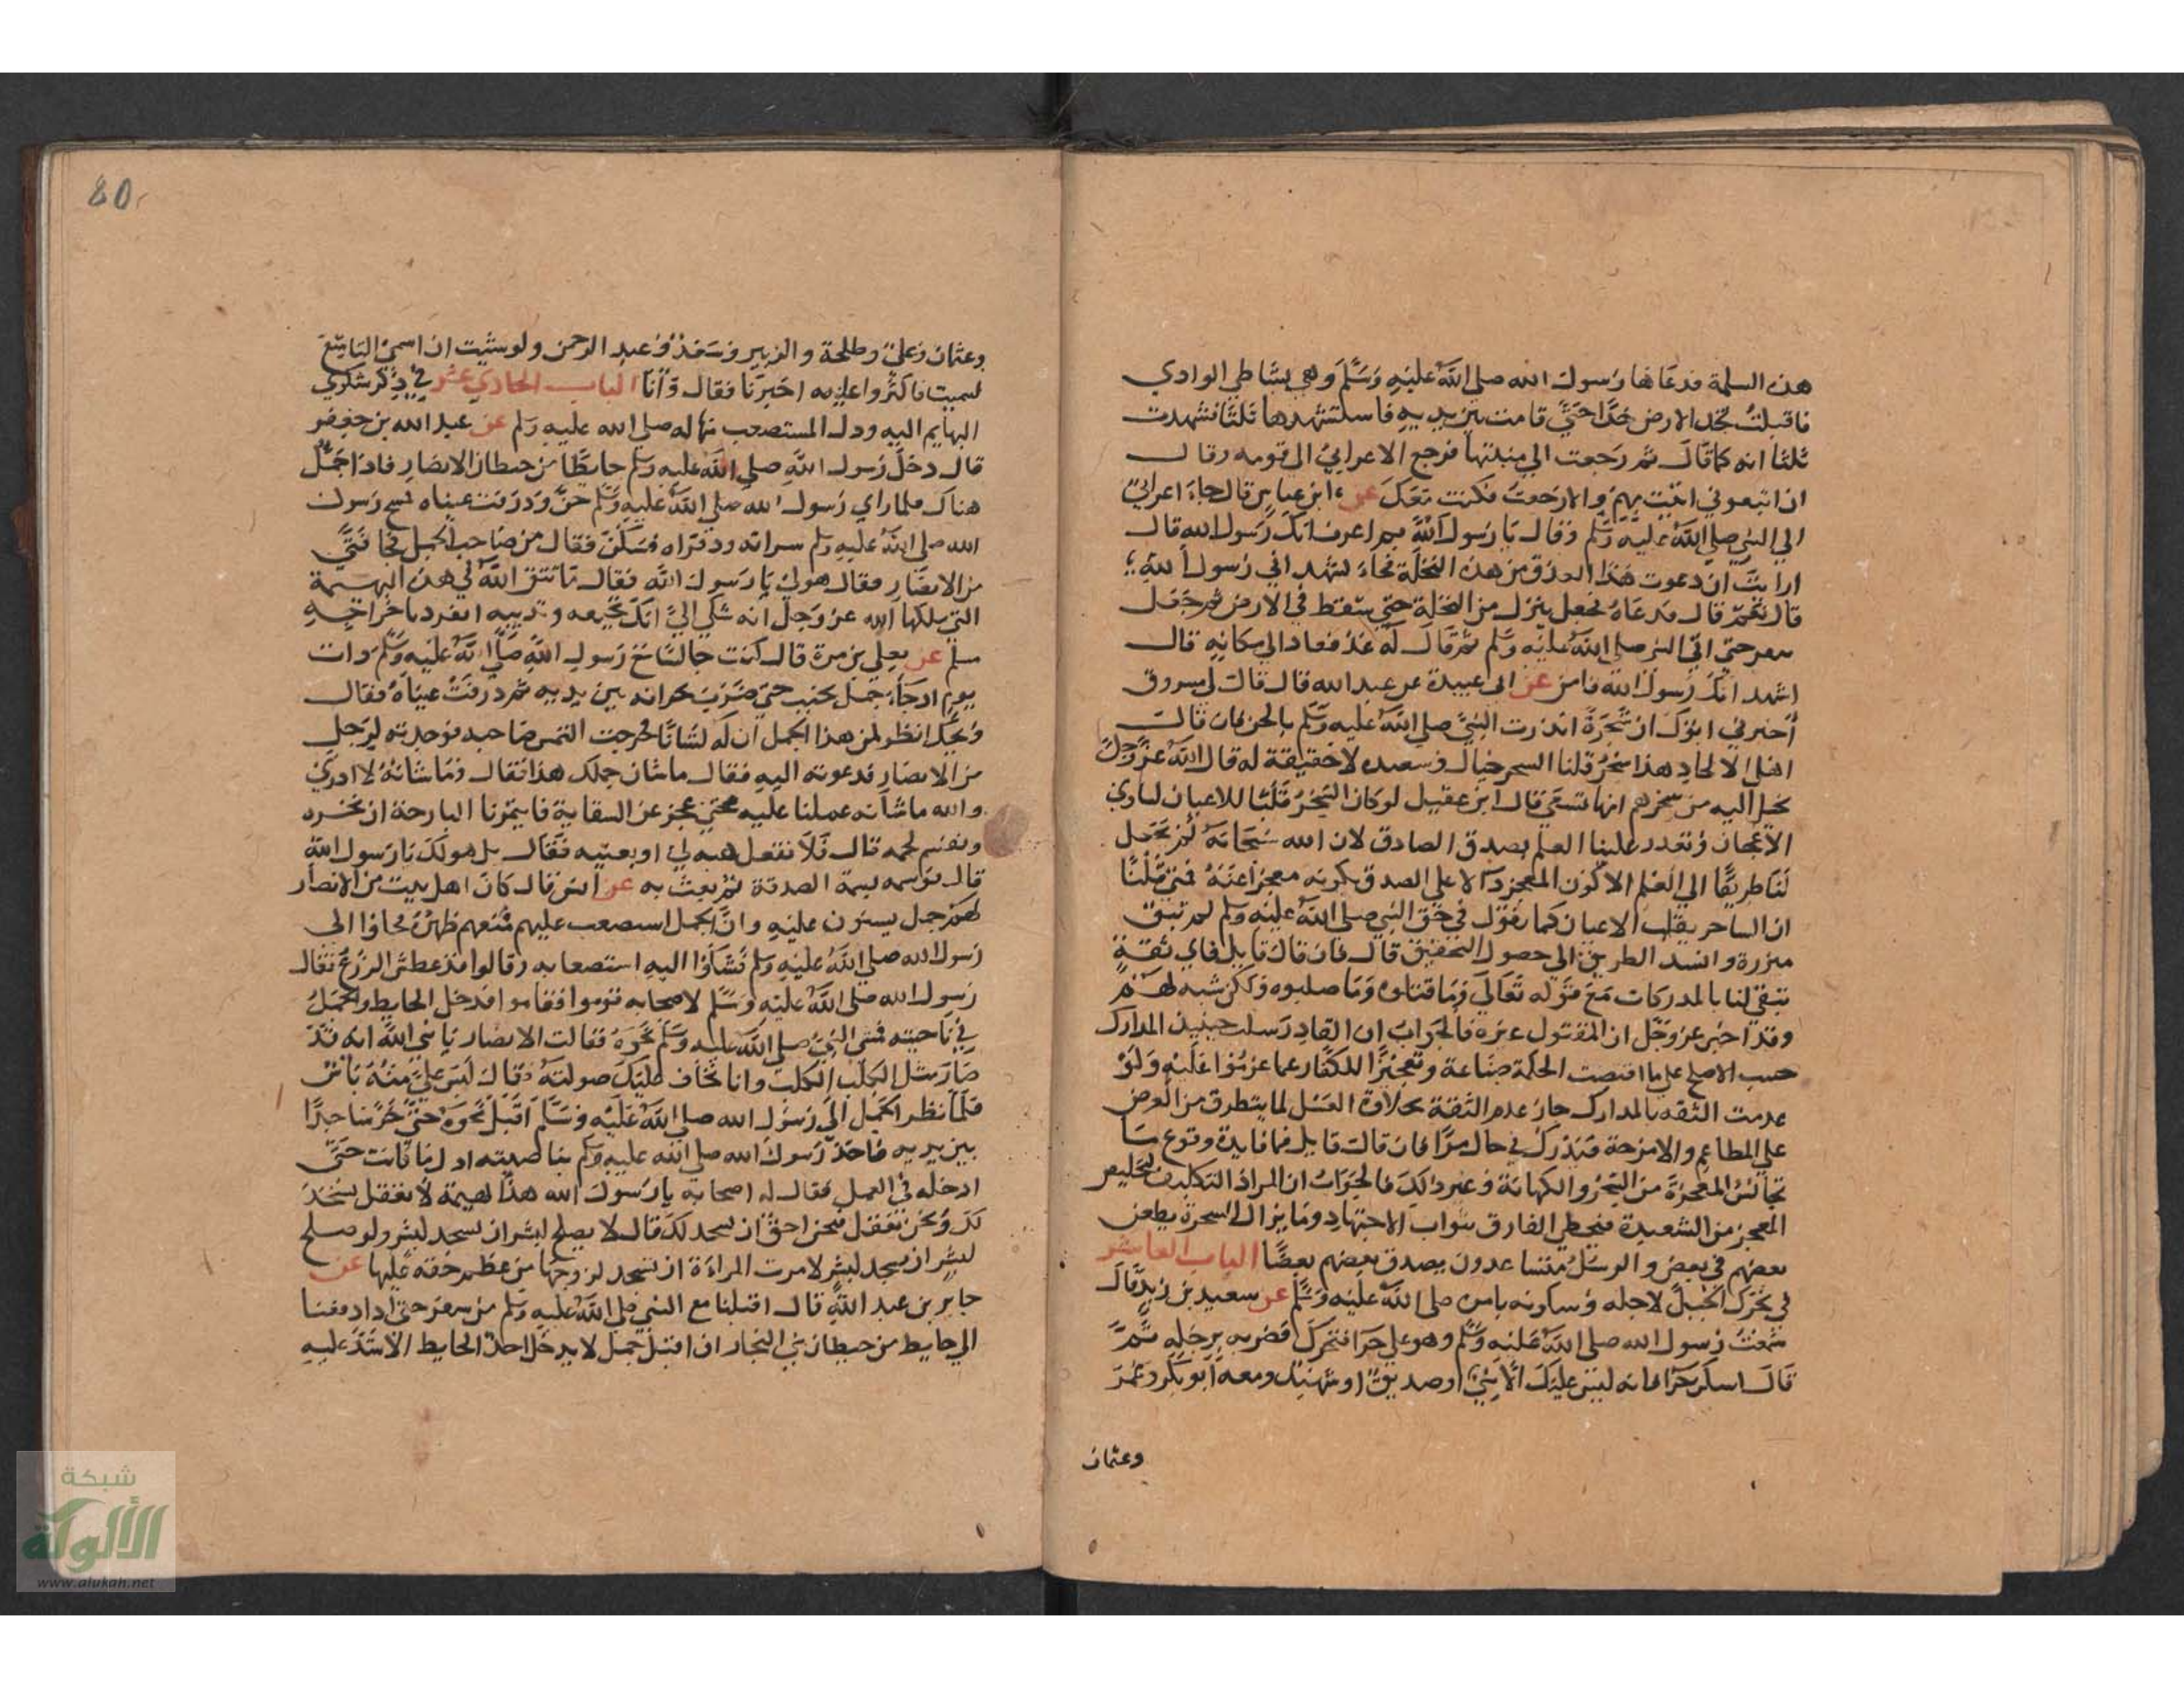 هذه السلمة فدعاها رسول الله صلى الله عليه وسلم وهي بشاطي الوادي
فاقبلت تخد الارض خدا حتى قامت بين يديه فاستشهدها ثلثا فشهدت
ثلثا انه كما قال ثم رجعت الى منبتها فرجع الاعرابي الى قومه وقال
ان اتبعوني اتيت بهم والا رجعت فكنت معك عن ابن عباس قال جاء اعرابي
الى النبي صلى الله عليه وسلم فقال يا رسول الله بم اعرف انك رسول الله قال
ارايت ان دعوت هذا العذق من هذه النخلة فجاء يشهد اني رسول الله
قال نعم قال فدعاه فجعل ينزل من النخلة حتى سقط في الارض ثم جعل
حتى اتى النبي صلى الله عليه وسلم ثم قال له عد فعاد الى مكانه قال
اشهد انك رسول الله فامن عن ابي عبيدة عن عبد الله قال قال لي مسروق
اخبرني ابوك ان شجرة انذرت النبي صلى الله عليه وسلم بالجن فان قالت
اهل الالحاد هذا سحر قلنا السحر خيال وشعبده لا حقيقة له قال الله عز وجل
يخيل اليه من سحرهم انها تسعى قال ابن عقيل لو كان السحر قلبا للاعيان لساوى
الاعجاز وتعذر علينا العلم بصدق الصادق لان الله سبحانه لم يجعل
لنا طريقا الى العلم الا كون المعجز دالا على الصدق بكونه معجزا عنه فمتى قلنا
ان الساحر يقلب الاعيان كما نقول في حق النبي صلى الله عليه وسلم لم تبق
مزية وانسد الطريق الى حصول التحقيق قال فان قال قايل فاي ثقة
تبقى لنا بالمدركات مع قوله تعالى وما قتلوه وما صلبوه ولكن شبه لهم
وقد اخبر عز وجل ان المقتول غيره فالجواب ان القادر سلب حينيذ المدارك
حسب الاصلح على ما اقتضت الحكمة صناعة وتعجيزا للكفار عما عزموا عليه ولو
عدمت الثقه بالمدارك جاز عدم الثقة بحلاوة العسل لما يتطرق من العرض
على المطاعم والامزجة فتدرك في حال مرا فان قالت قايل فما فايدة وقوع ما
يجانس المعجزة من السحر والكهانة وغير ذلك فالجواب ان المراد التكليف لتخليص
المعجز من الشعبدة فيحظى الفارق بثواب الاجتهاد وما يزال السحرة يطعن
بعضهم في بعض والرسل متساعدون يصدق بعضهم بعضا الباب العاشر
في تحرك الجبل لاجله وسكونه بامره صلى الله عليه وسلم عن سعيد بن زيد قال
سمعت رسول الله صلى الله عليه وسلم وهو على حرا فتحرك فضربه برجله ثم
قال اسكن حرا فانه ليس عليك الا نبي او صديق او شهيد ومعه ابو بكر وعمر
وعثمان
80
وعثمان وعلي وطلحة والزبير وسعد وعبد الرحمن ولو شيت ان اسمي التاسع
لسميت فاكثروا عليه اخبرنا فقال وانا الباب الحادي عشر في ذكر شكوى
البهايم اليه وذل المستصعب منها له صلى الله عليه وسلم عن عبد الله بن جعفر
قال دخل رسول الله صلى الله عليه وسلم حايطا من حيطان الانصار فاذا جمل
هناك فلما راي رسول الله صلى الله عليه وسلم حن وذرفت عيناه فمسح رسول
الله صلى الله عليه وسلم سراته وذفراه فسكن فقال من صاحب الجمل فجا فتى
من الانصار فقال هو لي يا رسول الله فقال ما تتق الله في هذه البهيمة
التي ملكها الله عز وجل انه شكى الي انك تجيعه وتدييه انفرد باخراجه
مسلم عن يعلى بن مرة قال كنت جالسا مع رسول الله صلى الله عليه وسلم ذات
يوم اذ جاء جمل يخبب حتى ضرب بجرانه بين يديه ثم ذرفت عيناه فقال
ويحك انظر لمن هذا الجمل ان له لشانا فخرجت التمس صاحبه فوجدته لرجل
من الانصار فدعوته اليه فقال ما شان جملك هذا فقال وما شانه لا ادري
والله ما شانه عملنا عليه حتى عجز عن السقاية فايتمرنا البارحة ان ننحره
ونقسم لحمه قال فلا تفعل هبه لي او بعنيه فقال بل هو لك يا رسول الله
قال فوسمه بسمة الصدقة ثم بعث به عن انس قال كان اهل بيت من الانصار
لهم جمل يسنون عليه وان الجمل استصعب عليهم فمنعهم ظهره فجاؤا الى
رسول الله صلى الله عليه وسلم فشكوا اليه استصعابه وقالوا قد عطش الزرع فقال
رسول الله صلى الله عليه وسلم لاصحابه قوموا فقاموا فدخل الحايط والجمل
في ناحيته فمشى النبي صلى الله عليه وسلم نحوه فقالت الانصار يا نبي الله انه قد
صار مثل الكلب الكلب وانا نخاف عليك صولته فقال ليس علي منه باس
فلما نظر الجمل الى رسول الله صلى الله عليه وسلم اقبل نحوه حتى خر ساجدا
بين يديه فاخذ رسول الله صلى الله عليه وسلم بناصيته اذل ما كانت حتى
ادخله في العمل فقال له اصحابه يا رسول الله هذا بهيمة لا تعقل تسجد
لك ونحن نعقل فنحن احق ان نسجد لك قال لا يصلح لبشر ان يسجد لبشر ولو صلح
لبشر ان يسجد لبشر لامرت المراءة ان تسجد لزوجها من عظم حقه عليها عن
جابر بن عبد الله قال اقبلنا مع النبي صلى الله عليه وسلم من سفر حتى اذا دفعنا
الى حايط من حيطان بني النجار اذا فيه جمل لا يدخل احد الحايط الا شد عليه
شبكة
الألوكة
www.alukah.net